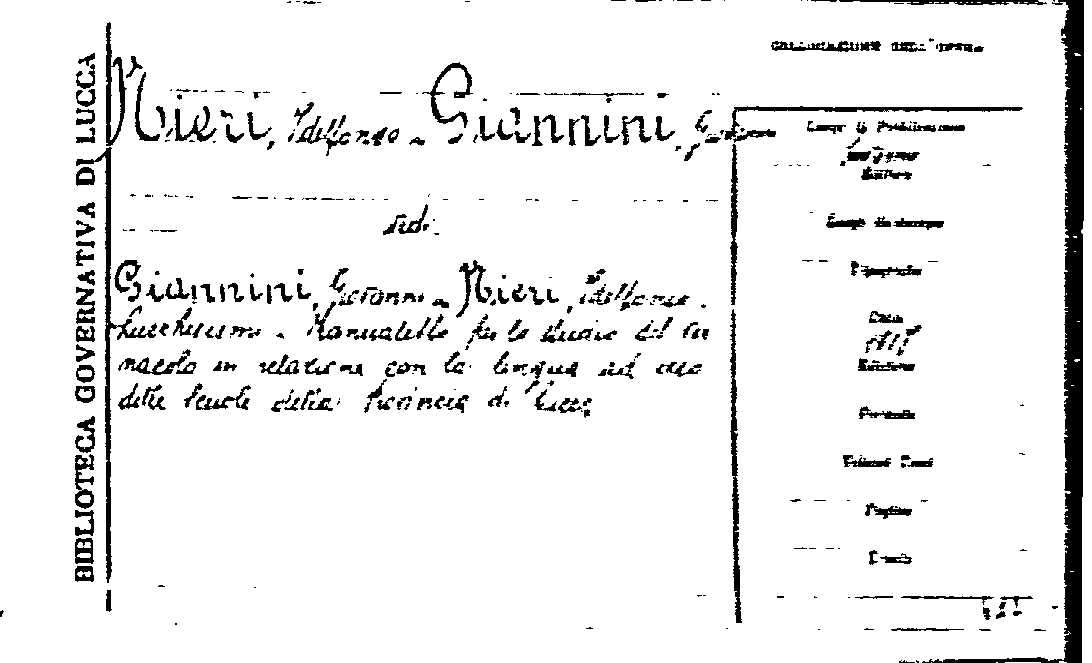 BIBLIOTECA GOVERNATIVA DI LUCCA
COLLOCAZIONE DELL'OPERA
Nieri, Ildefonso e Giannini, Giovanni
vedi:
Giannini, Giovanni e Nieri, Ildefonso.
Lucchesismi - Manualetto per lo studio del ver
nacolo in relazione con la lingua ad uso
delle Scuole della Provincia di Lucca
Luogo di Pubblicazione
Editore
Luogo di stampa
Tipografia
Data
Edizione
Formato
Volumi
Pagine